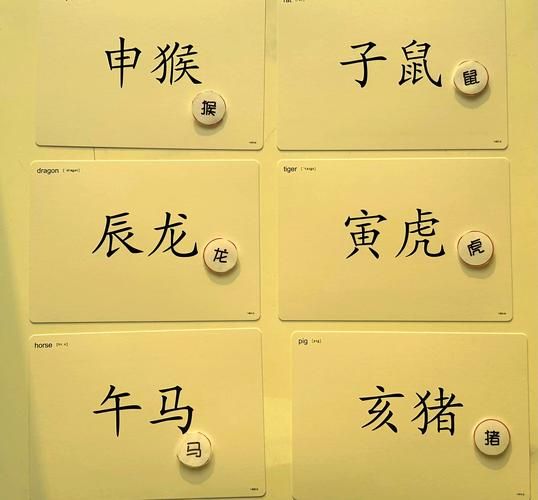 申猴
猴
子鼠
鼠
dragon
辰龙
龙
tiger
寅虎
虎
horse
午马
马
pig [pig]
亥猪
猪